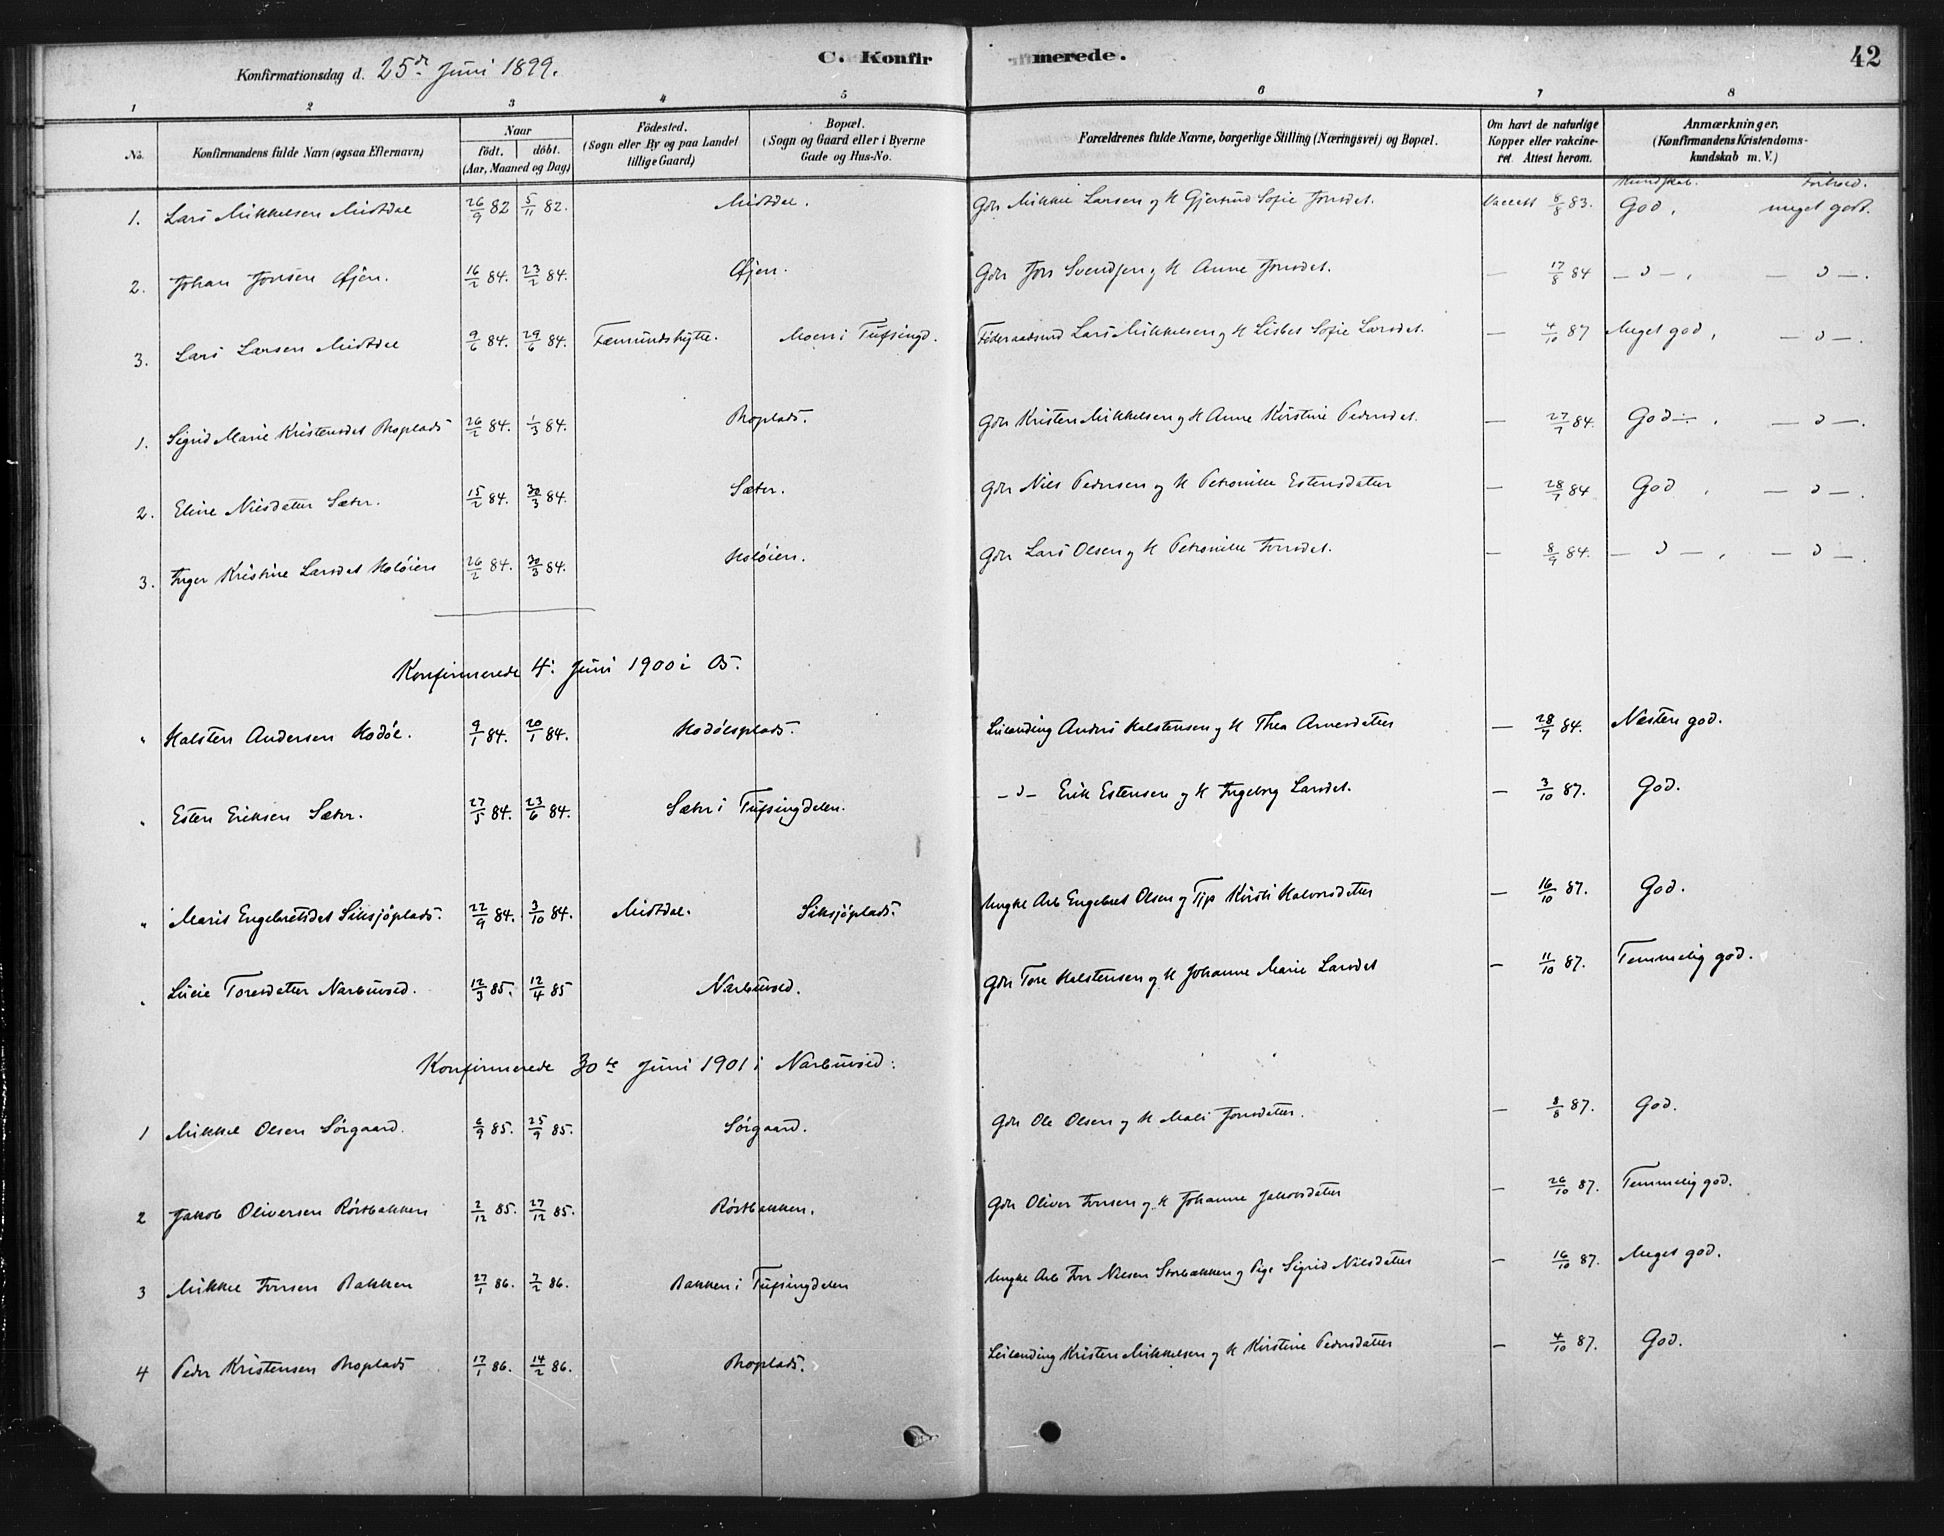 Konfirmationsdag d. 25de Juni 1899.
C. Konfirmerede.
42
1 2 3 4 5 6 7 8
No. Konfirmandens fulde Navn (ogsaa Efternavn) Naar født. døbt. (Aar, Maaned og Dag) Fødested. (Sogn eller By og paa Landet tillige Gaard) Bopæl. (Sogn og Gaard eller i Byerne Gade og Hus-No. Forældrenes fulde Navne, borgerlige Stilling (Næringsvei) og Bopæl. Om havt de naturlige Kopper eller vakcineret. Attest herom. Anmærkninger. (Konfirmandens Kristendomskundskab m. V.)
Kundskab. Forhold.
1. Lars Mikkelsen Midtdal 26/9 82 5/11 82. Midtdal. Gbr Mikkel Larsen og H Gjertrud Sofie Jonsdat. Vaccatt 8/8 83. God, meget godt.
2. Johan Jonsen Øjen. 16/2 84. 23/2 84. Øjen. Gbr Jon Svendsen og H Anne Jonsdat. — 17/8 84 — " —, — " —.
3. Lars Larsen Midtdal 9/6 84. 29/6 84. Fæmundshytte. Moen i Tufsingd. Føderaadsmd Lars Mikkelsen og H Lisbet Sofie Larsdat. — 4/10 87 Meget god, — " —.
1. Sigrid Marie Kristensdat Moplads 26/2 84. 1/3 84. Moplads. Gbr Kristen Mikkelsen og H Anne Kirstine Pedersdat. — 27/7 84. God, — " —.
2. Eline Nilsdatter Sæter. 15/2 84. 30/3 84. Sæter. Gbr Nils Pedersen og H Petronille Estensdatter — 28/7 84 God, — " —.
3. Inger Kristine Larsdat Holøien 26/2 84. 30/3 84. Holøien. Gbr Lars Olsen og H Petronille Jonsdat. — 8/9 84. — " —, — " —.
Konfirmerede 4. Juni 1900 i Os.
" Halsten Andersen Hodøl. 9/1 84. 20/1 84. Hodølsplads. Leilænding Anders Halstensen og H Thea Arnesdatter — 28/7 84. Næsten god.
" Esten Eriksen Sæter. 27/5 84. 23/6 84. Sæter i Tufsingdalen. — " — Erik Estensen og H Ingeborg Larsdat. — 3/10 87. God.
" Marit Engebretsdat Siksjøplads. 22/9 84. 3/10 84. Midtdal. Siksjøplads. Ungkl Arb Engebret Olsen og Tjp Kirsti Halvorsdatter — 16/10 87. God.
" Lucie Toresdatter Narbuvod. 12/3 85. 12/4 85 Narbuvod. Gbr Tore Halstensen og H Johanne Marie Larsdat — 11/10 87. Temmelig god.
Konfirmerede 30te Juni 1901 i Narbuvod.
1 Mikkel Olsen Sørgaard. 6/9 85. 25/9 85. Sørgaard. Gbr Ole Olsen og H Mali Jonsdatter. — 8/8 87. God.
2 Jakob Oliversen Røstbakken 2/12 85. 27/12 85. Røstbakken. Gbr Oliver Jonsen og H Johanne Jakobsdatter — 26/10 87. Temmelig god.
3 Mikkel Jonsen Bakken 27/1 86. 7/2 86. Bakken i Tufsingdalen Ungkl Arb Jon Nilsen Storbakken og Pige Sigrid Nilsdatter — 16/10 87. Meget god.
4 Peder Kristensen Moplads 17/1 86. 14/2 86. Moplads. Leilænding Kristen Mikkelsen og H Kirstine Pedersdatter — 4/10 87. God.